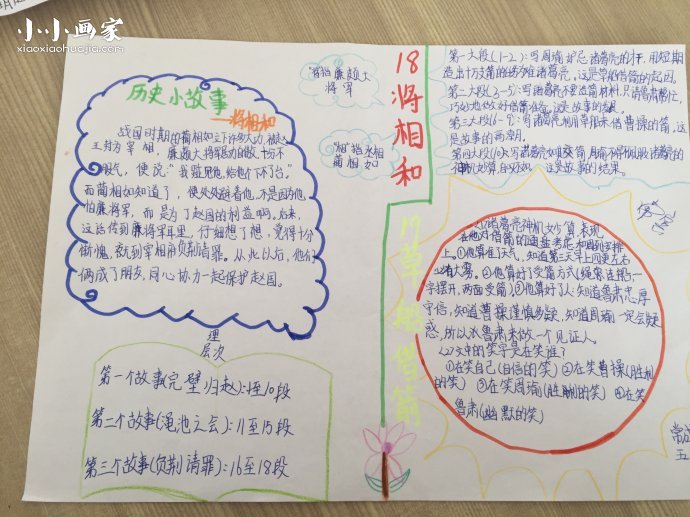 小小画家
xiaoxiaohuajia.com
历史小故事
——将相和
战国时期的蔺相如立下许多大功,被赵
王封为宰相,廉颇大将军功劳最大,十分不
服气,便说:“我要见他,给他个下不了台。”
而蔺相如知道了,便处处避着他,不是因为他
怕廉将军,而是为了赵国的利益啊。后来,
这话传到廉将军耳里,仔细想了想,觉得十分
惭愧,就到宰相府负荆请罪。从此以后,他们
俩成了朋友,同心协力一起保护赵国。
“将”指廉颇大
将军
“相”指丞相
蔺相如
18
将相和
理
层次
第一个故事(完璧归赵):1至10段
第二个故事(渑池之会):11至15段
第三个故事(负荆请罪):16至18段
19
草船借箭
第一大段(1-2):写周瑜妒忌诸葛亮的才,用短期
造出十万支箭的任务难诸葛亮。这是草船借箭的起因。
第二大段(3-5):写诸葛亮不要造箭材料,只请鲁肃帮忙,
巧妙地做好借箭准备,这是故事的发展。
第三大段(6-9):写诸葛亮利用草船来借曹操的箭,这
是故事的高潮。
诸葛亮神机妙算,表现
在他对借箭的通盘考虑和周到安排
上。①他算准了天气,知道第三天早上四更左右
必有大雾。②他算好了受箭方式(绳索连船,一
字摆开,两面受箭)。③他算好了人:知道鲁肃忠厚
守信,知道曹操谨慎多疑,知道周瑜一定会疑
惑,所以求鲁肃来做一个见证人。
(2)文中的笑字是在笑谁?
①在笑自己(自信的笑)②在笑曹操(胜利
的笑)③在笑周瑜(胜利的笑)④在笑
鲁肃(幽默的笑)